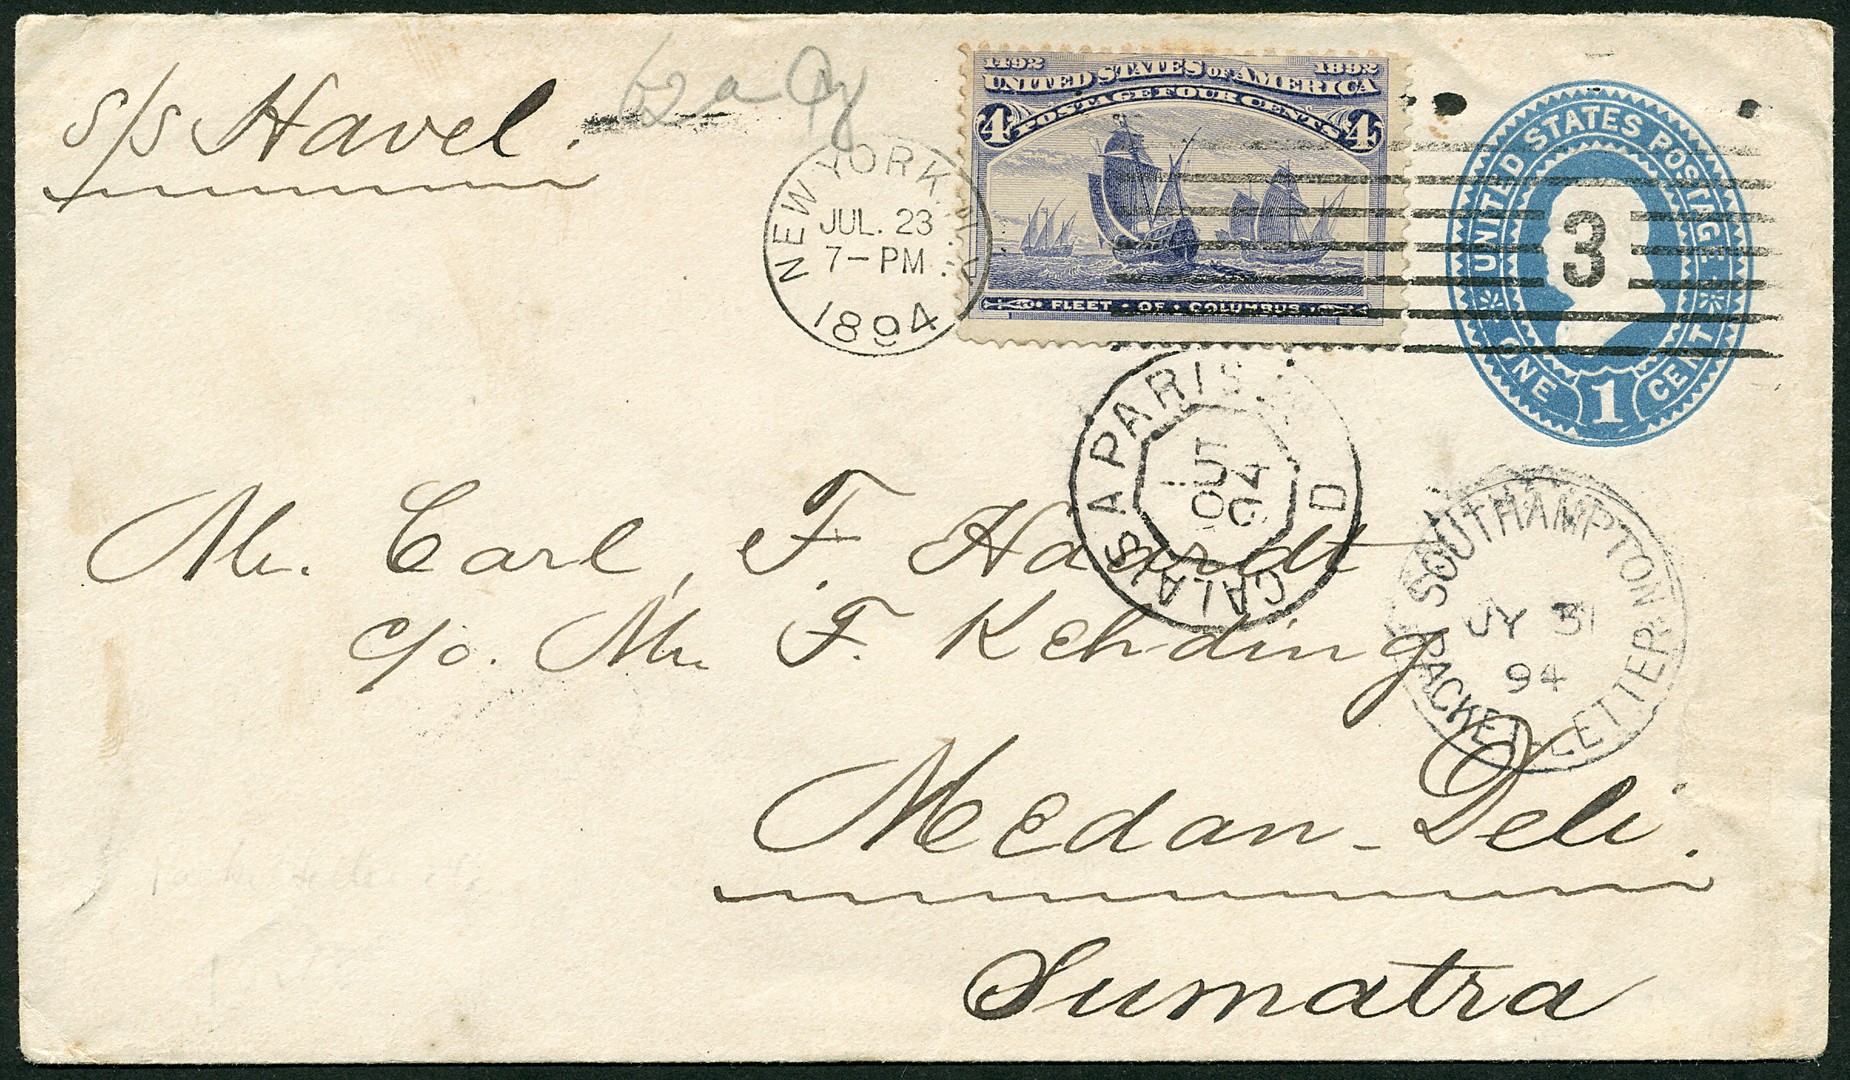 s/s Havel.
1492 1892
UNITED STATES OF AMERICA
POSTAGE FOUR CENTS
4 4
FLEET • OF • COLUMBUS
UNITED STATES POSTAGE
ONE 1 CENT
NEW YORK, N.Y.
JUL. 23
7-PM
1894
3
CALAIS A PARIS D
94
SOUTHAMPTON
JY 31
94
PACKET-LETTER
Mr. Carl F. Haardt
c/o. Mr. F. Kehding
Medan-Deli.
Sumatra